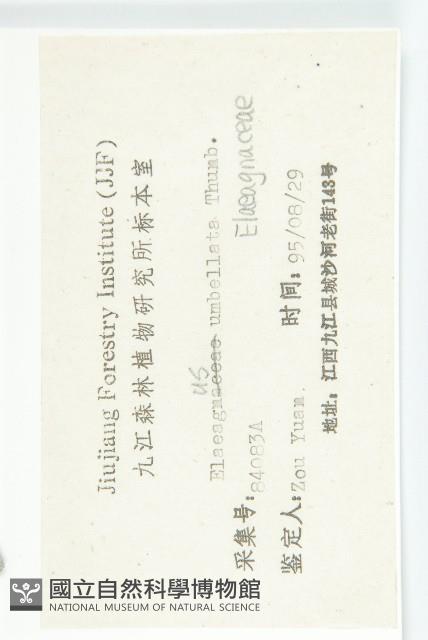 Jiujiang Forestry Institute (JJF)
九江森林植物研究所标本室
us
Elaeagnaceae umbellata Thunb.
Elaeagnaceae
采集号: 84083A
鉴定人: Zou Yuan. 时间: 95/08/29
地址: 江西九江县城沙河老街143号
國立自然科學博物館
NATIONAL MUSEUM OF NATURAL SCIENCE